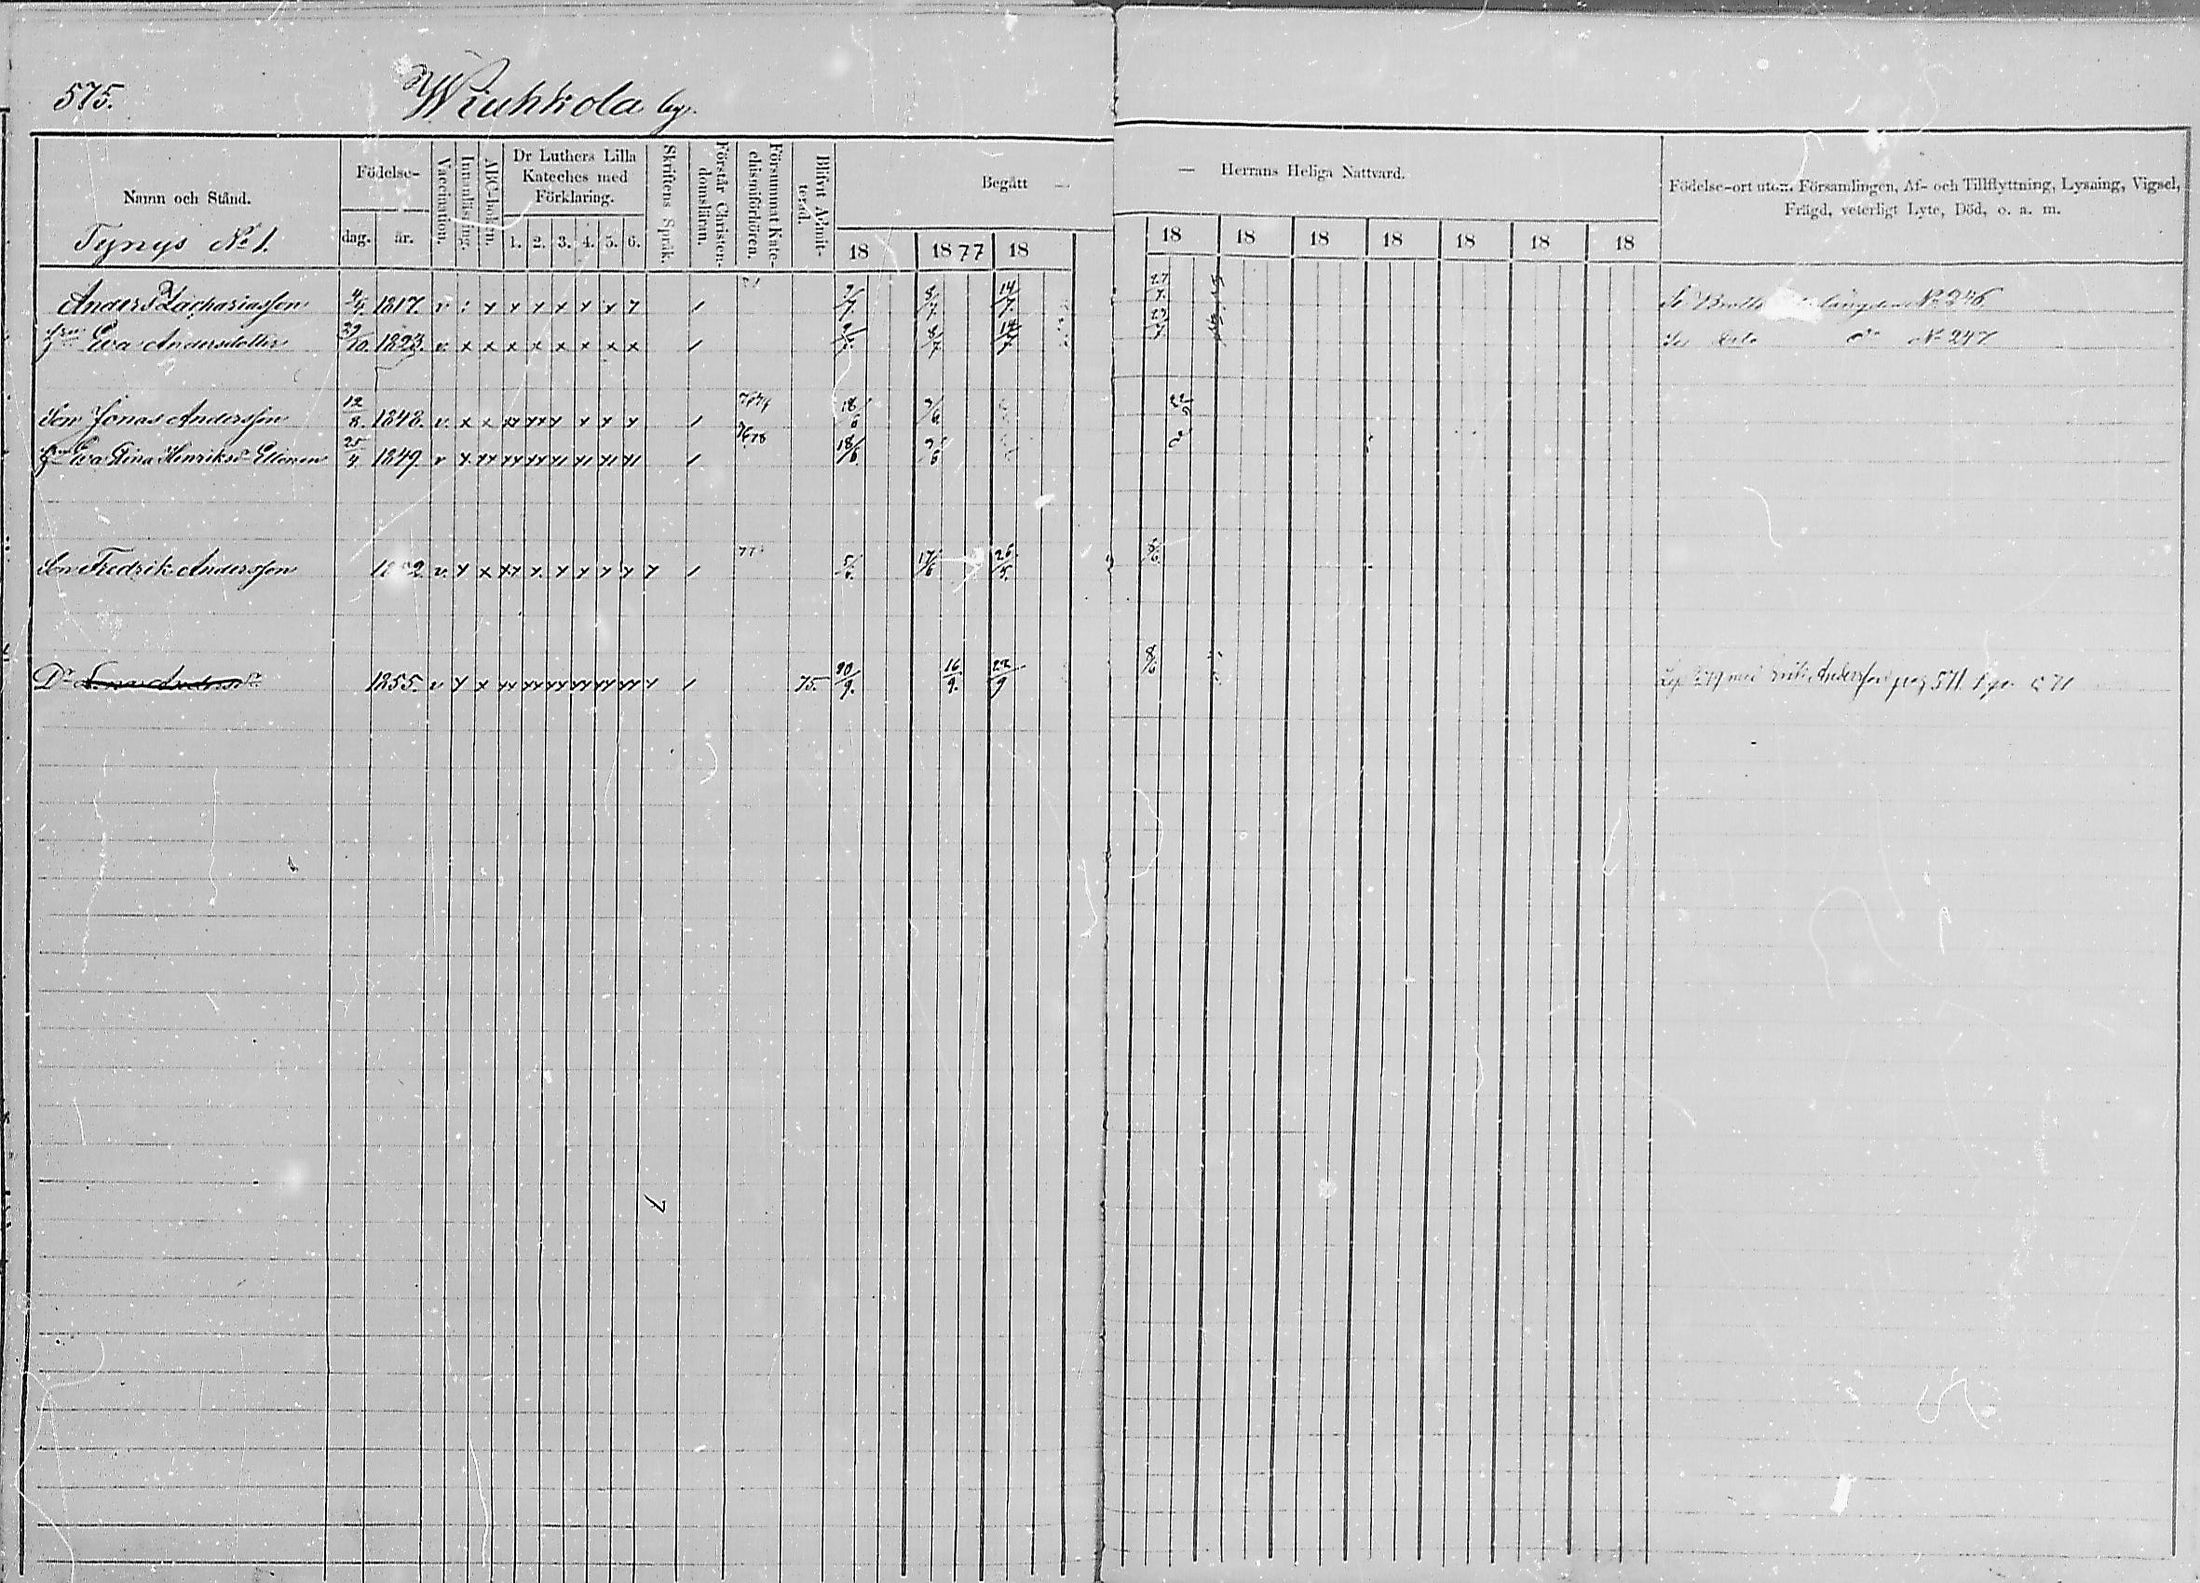 575. Wiuhkola by.
Namn och Stånd.
Födelse-
dag. år.
Vaccination.
Innanläsning.
ABC-boken.
Dr Luthers Lilla Kateches med Förklaring.
1. 2. 3. 4. 5. 6.
Skriftens Språk.
Förstår Christendomsläran.
Försummat Katechismiförhören.
Blifvit Admitterad.
Begått — — Herrans Heliga Nattvard.
18 1877 18 18 18 18 18 18 18 18
Födelse-ort utom Församlingen, Af- och Tillflyttning, Lysning, Vigsel,
Frägd, veterligt Lyte, Död, o. a. m.
Tynys No 1.
Anders Zachariasson 4/4. 1817. v x x x x x x x / 9/7. 8/7. 14/7. 27/7. Se No 246
Eva Andersdotter 29/10. 1823. v. x x x x x x x x / 9/7. 8/7. 14/7. 29/7. No 247
Son Jonas Andersson 12/8. 1848. v. x x xx xx x x x x / 18/6 9/6.
Eva Stina Henriksd. Ellonen 25/4 1849. v x xx xx xx xi xi xi xi / 18/6. 9/6
Son Fredrik Andersson v. x x xx x. x x x x x / 5/6. 17/6 26/5. 8/6.
Dr 1855. v x x xx xx xx xx xx xx x / 75. 30/9. 16/9. 22/9 8/6 Andersson pag 571.